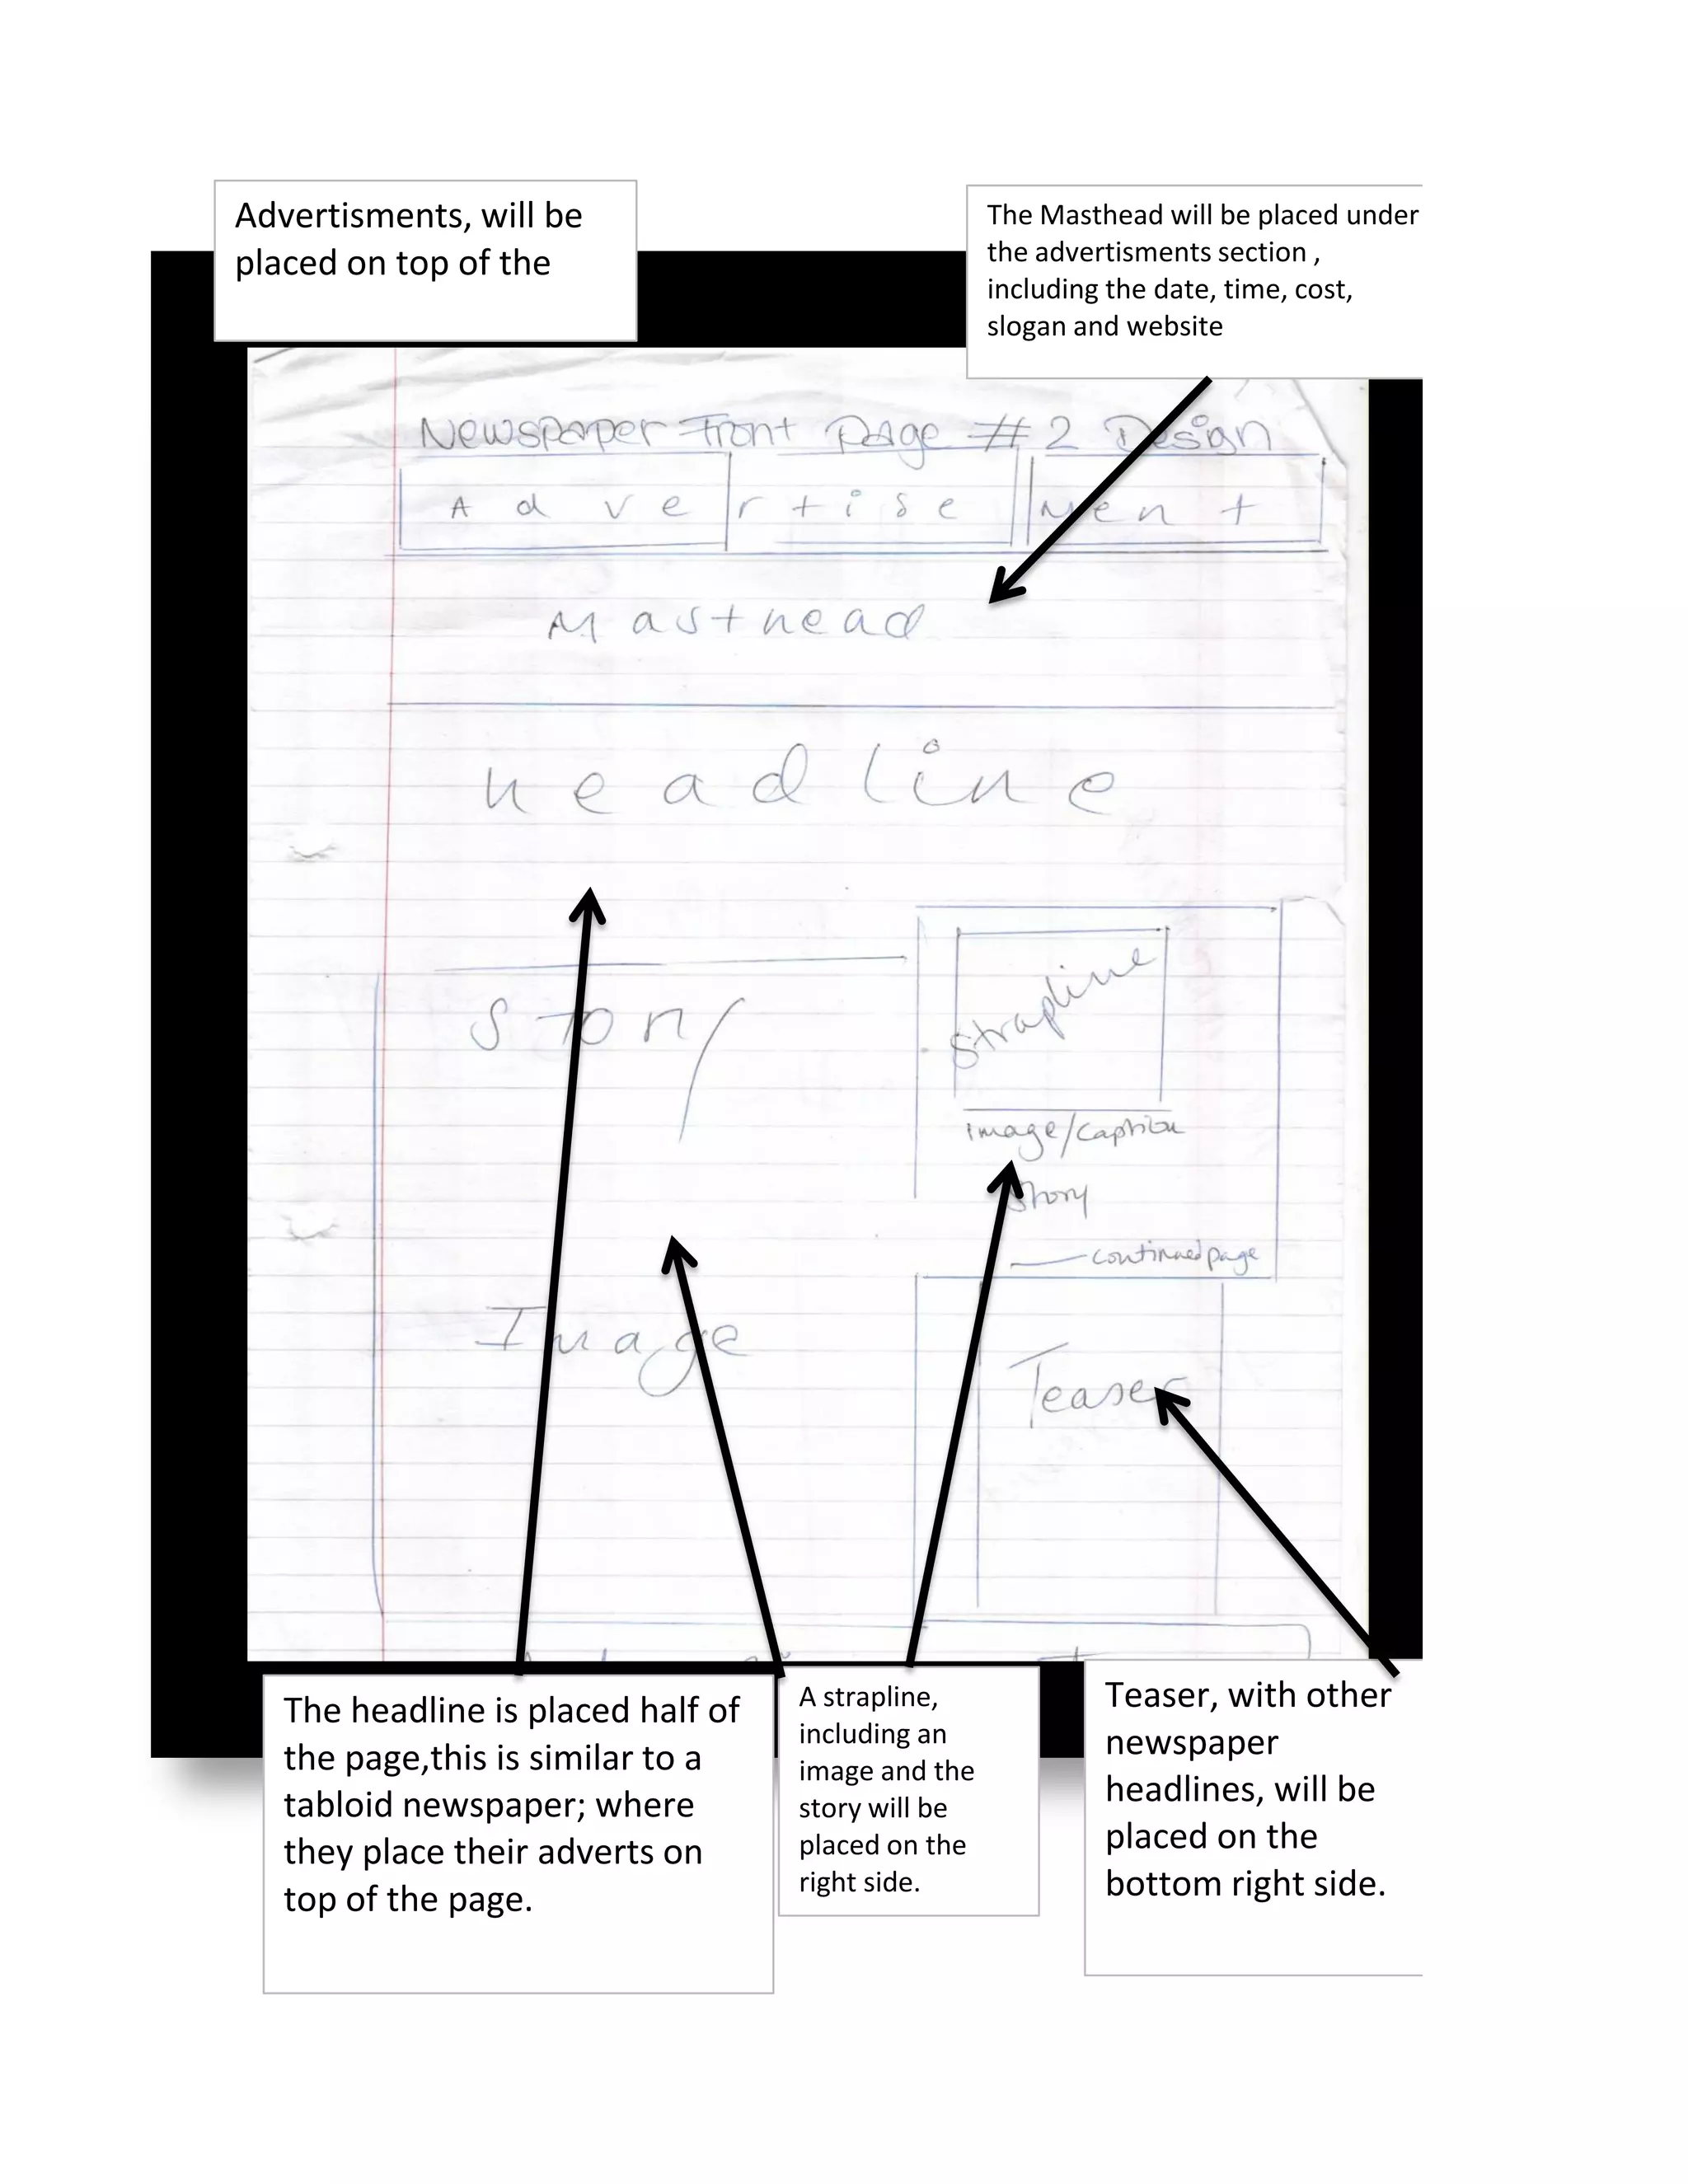 Advertisments, will be
placed on top of the
The Masthead will be placed under
the advertisments section ,
including the date, time, cost,
slogan and website
Newspaper Front Page # 2 Design
Advertisement
Masthead
headline
Story
Strapline
image/caption
Story
continued page
Image
Teaser
The headline is placed half of
the page,this is similar to a
tabloid newspaper; where
they place their adverts on
top of the page.
A strapline,
including an
image and the
story will be
placed on the
right side.
Teaser, with other
newspaper
headlines, will be
placed on the
bottom right side.